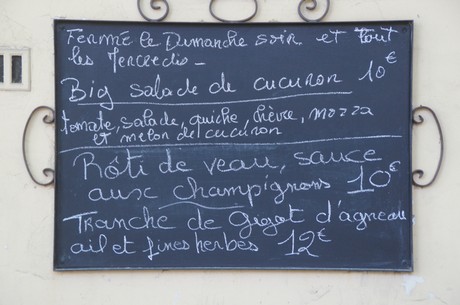 Fermé le Dimanche soir et tout
les Mercredis -
Big salade de cucuron 10€
tomate, salade, quiche, chèvre, mozza
et melon de cucuron
Rôti de veau, sauce
aux champignons 10€
Tranche de Gigot d'agneau
ail et fines herbes 12€